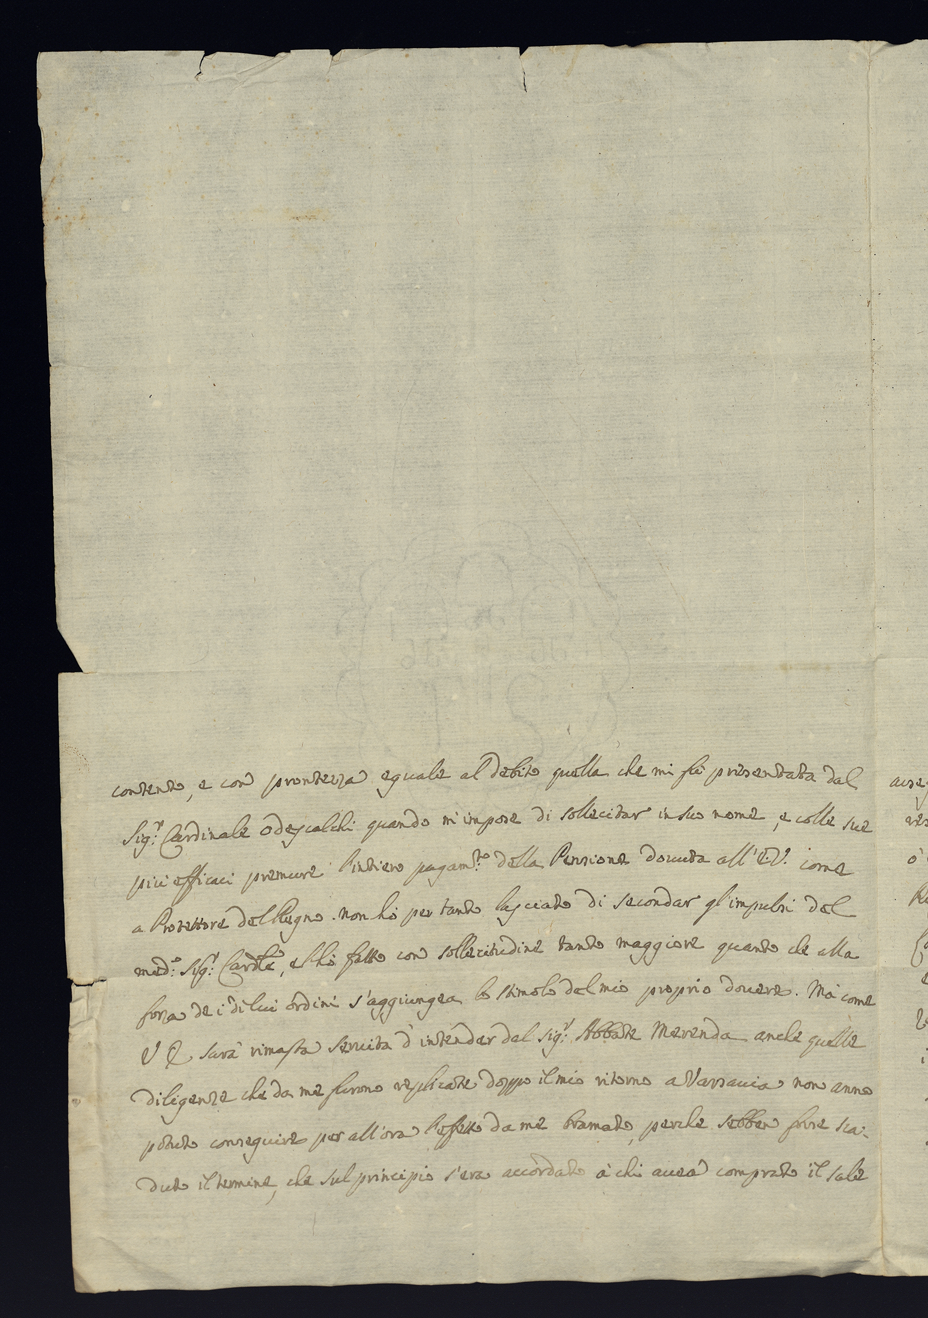 contento, e con prontezza eguale al debito quella che mi fù presentata dal
Sig.r Cardinale Odescalchi quando m'impose di sollecitar in suo nome, e colle sue
più efficaci premure l'intiero pagam.to della Pensione douuta all'E.V. come
a Protettore del Regno. Non hò per tanto lasciato di secondar gl'impulsi del
med.o Sig.r Card.le, e l'hò fatto con sollecitudine tanto maggiore quanto che alla
forza de i di lui ordini s'aggiungea lo stimolo del mio proprio douere. Mà come
V E sarà rimasta seruita d'intender dal Sig.r Abbate Merenda anche quelle
diligenze che da me furono replicate doppo il mio ritorno a Varsauia non anno
potuto conseguire per all'ora l'effetto da me bramato, perche sebben fosse sca-
duto il termine, che sul principio s'era accordato à chi auea comprato il sale